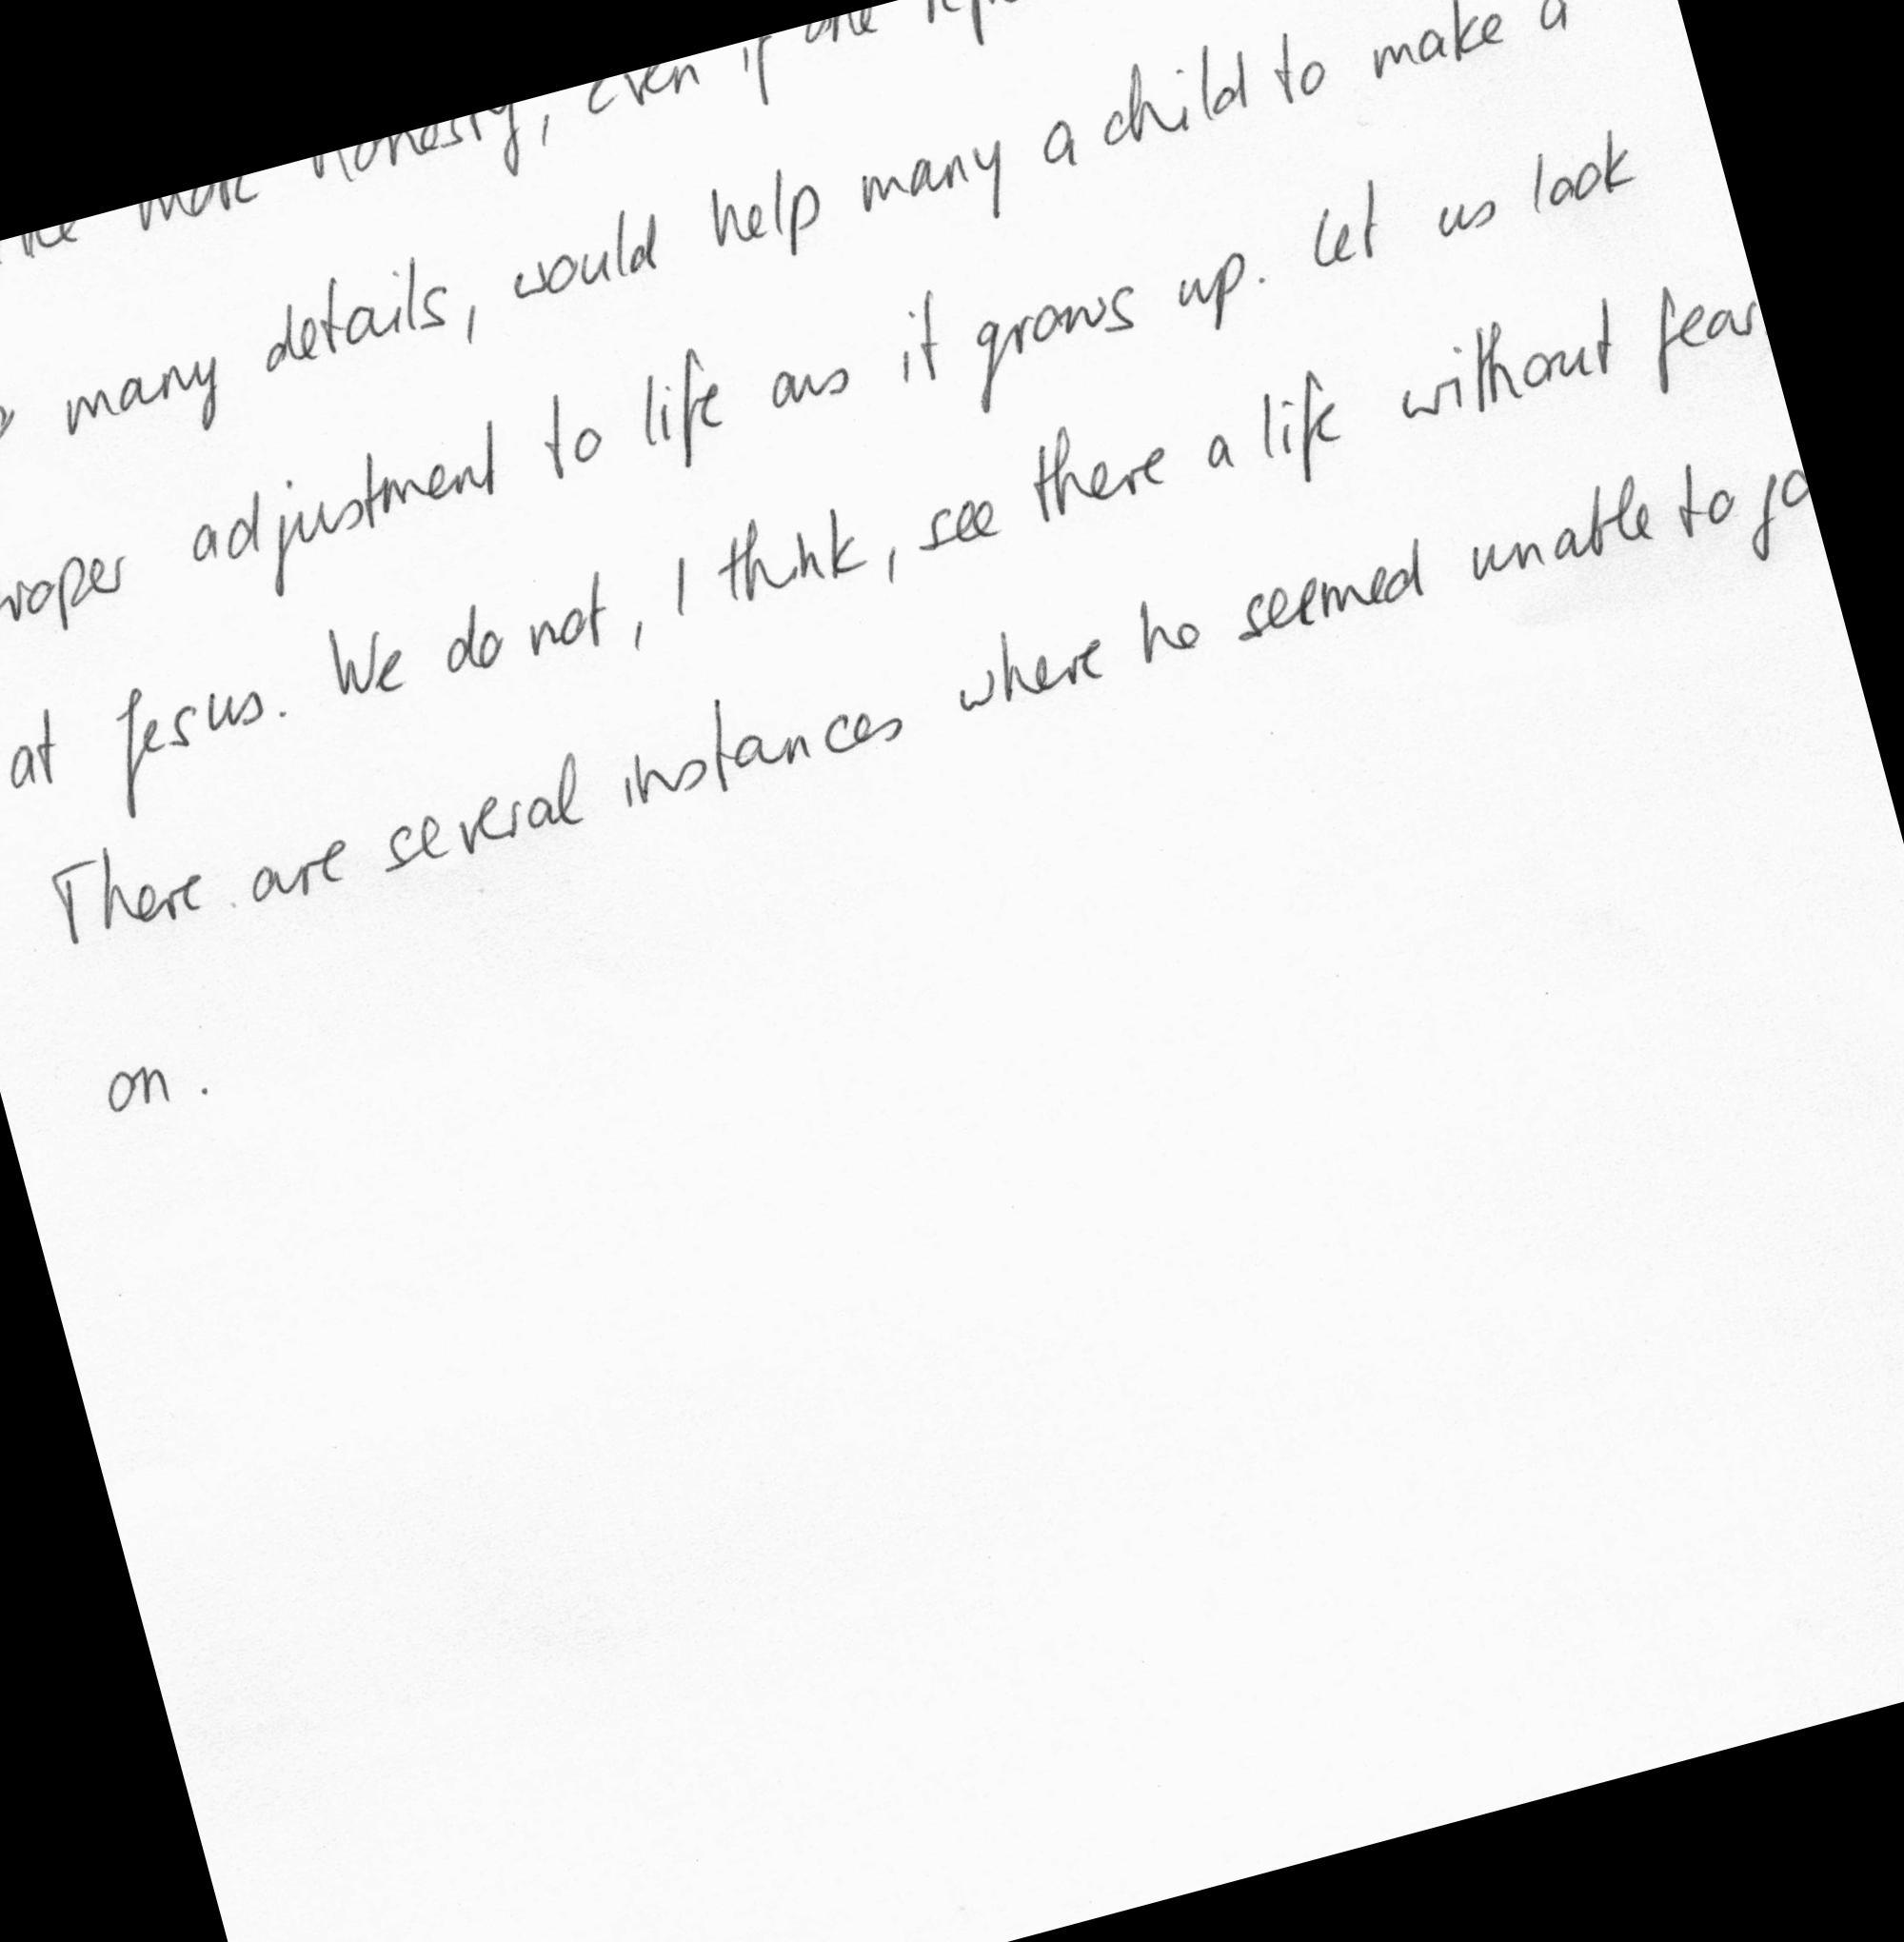 more honesty, even if one
many details, would help many a child to make a
proper adjustment to life as it grows up. Let us look
at Jesus. We do not, I think, see there a life without fear
There are several instances where he seemed unable to go
on.